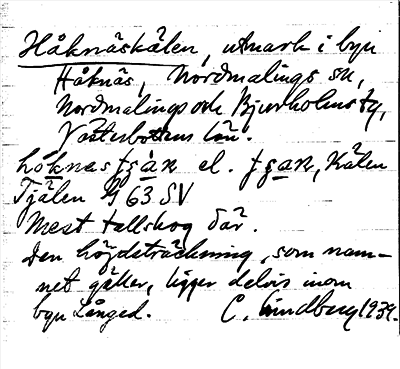 Håknäskälen, utmark i byn
Håknäs, Nordmalings sn,
Nordmalings och Bjurholms tg,
Västerbottens län.
el. Kälen
Tjälen G 63 SV
Mest tallskog där.
Den höjdsträckning, som nam-
net gäller, ligger delvis inom
byn Långed. C. Lindberg 1939.